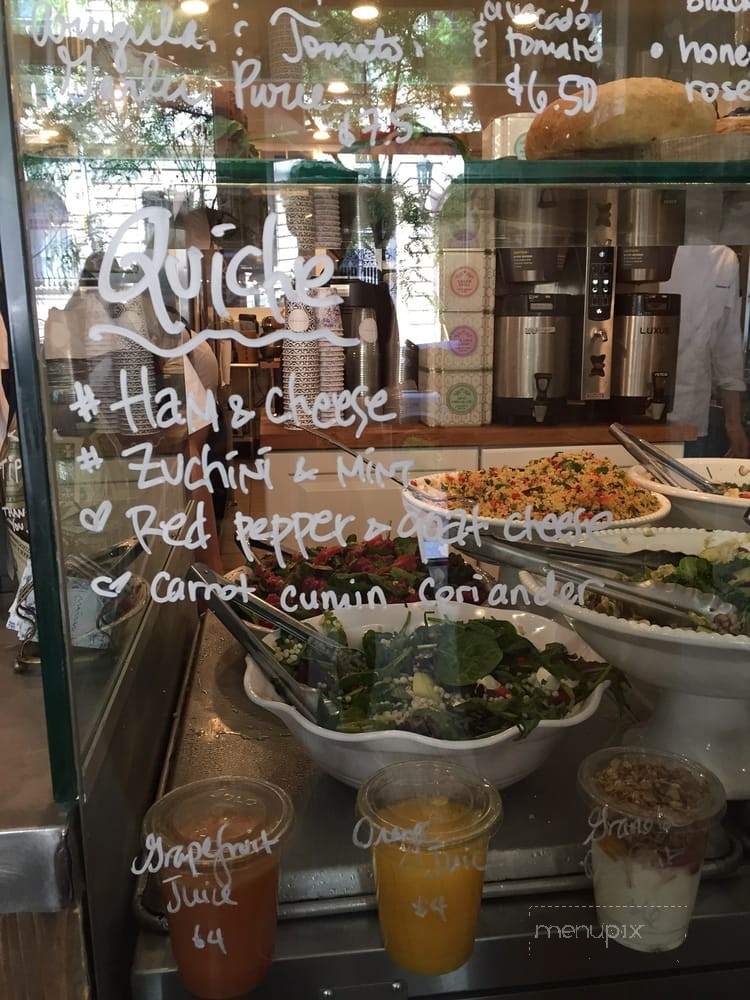 Arugula, Tomato,
Garlic Puree
$7.5
avocado
& tomato
$6.50
• hone
rose
Quiche
# Ham & cheese
# Zuchini & Mint
♡ Red pepper & goat cheese
♡ Carrot cumin coriander
Grapefruit
Juice
$4
Orange
Juice
$4
Granola
LUXUS
menupix